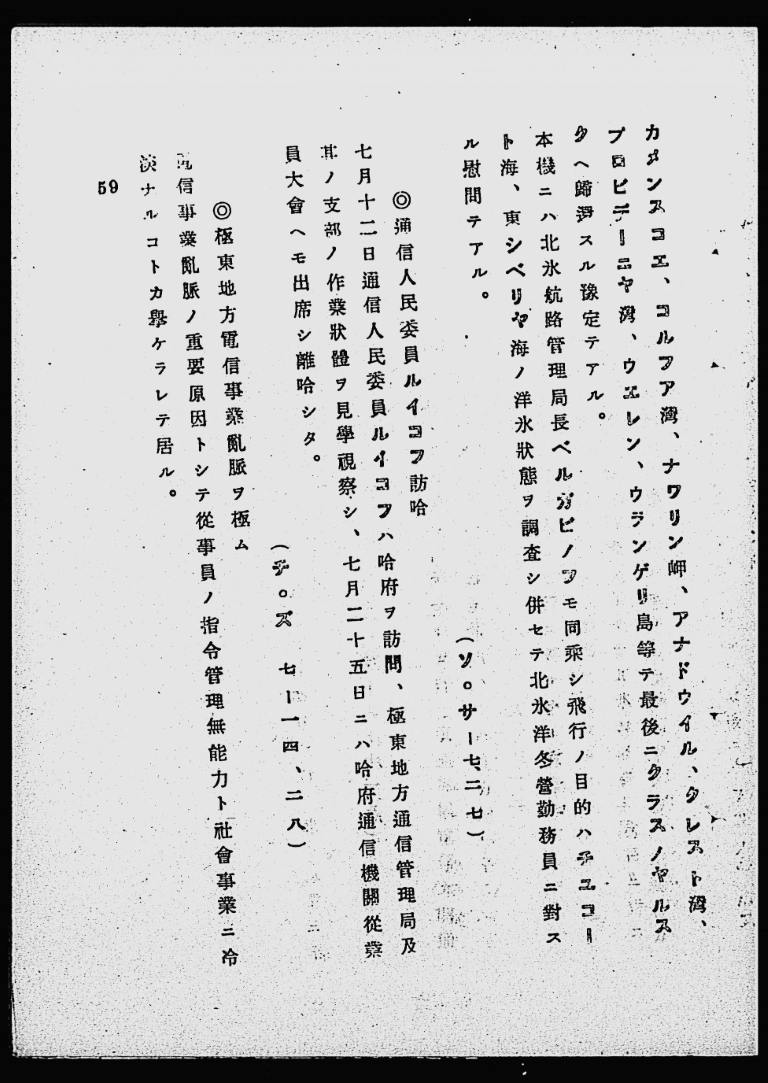 カメンスコエ、コルフア灣、ナワリン岬、アナドウイル、クレスト灣、
プロビデーニヤ灣、ウエレン、ウランゲリ島等テ最後ニクラスノヤルス
クヘ歸 スル豫定テアル。
本機ニハ北氷航路管理局長ベルガビノフモ同乘シ飛行ノ目的ハチユコー
ト海、東シベリヤ海ノ洋氷狀態ヲ調査シ併セテ北氷洋冬營勤務員ニ對ス
ル慰問テアル。
(ソ。サー七、二七)
◎通信人民委員ルイコフ訪哈
七月十二日通信人民委員ルイコフハ哈府ヲ訪問、極東地方通信管理局及
其ノ支部ノ作業狀體ヲ見學視察シ、七月二十五日ニハ哈府通信機關從業
員大會ヘモ出席シ離哈シタ。
(チ。ズ 七ー一四、二八)
◎極東地方電信事業亂脈ヲ極ム
電信事業亂脈ノ重要原因トシテ從事員ノ指令管理無能力ト社會事業ニ冷
淡ナルコトカ擧ケラレテ居ル。
59